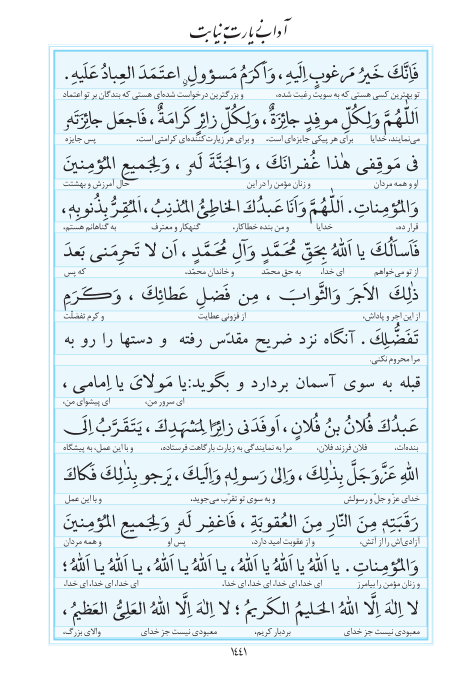 آداب زیارت به نیابت
فَاِنَّكَ خَيرُ مَرغوبٍ اِلَيهِ، وَاَكرَمُ مَسؤولٍ اعتَمَدَ العِبادُ عَلَيهِ.
تو بهترین کسی هستی که به سویت رغبت شده، و بزرگترین درخواست شده‌ای هستی که بندگان بر تو اعتماد
اَللّٰهُمَّ وَلِكُلِّ موفِدٍ جائِزَةٌ، وَلِكُلِّ زائِرٍ كَرامَةٌ، فَاجعَل جائِزَتَه
می‌نمایند، خدایا برای هر پیکی جایزه‌ای است، و برای هر زیارت کننده‌ای کرامتی است، پس جایزه
فى مَوقِفى هٰذا غُفرانَكَ، وَالجَنَّةَ لَه، وَلِجَميعِ المُؤمِنينَ
او و همه مردان و زنان مؤمن را در این حال آمرزش و بهشتت
وَالمُؤمِناتِ. اَللّٰهُمَّ وَاَنَا عَبدُكَ الخاطِئُ المُذنِبُ، اَلمُقِرُّ بِذُنوبِه،
قرار ده، خدایا و من بنده خطاکار، گنهکار و معترف به گناهانم هستم،
فَاَسأَلُكَ يا اَللّٰهُ بِحَقِّ مُحَمَّدٍ وَآلِ مُحَمَّدٍ، اَن لا تَحرِمَنى بَعدَ
از تو می‌خواهم ای خدا، به حق محمّد و خاندان محمّد، که پس
ذٰلِكَ الاَجرَ وَالثَّوابَ، مِن فَضلِ عَطائِكَ، وَكَرَمِ
از این اجر و پاداش، از فزونی عطایت و کرم تفضّلت
تَفَضُّلِكَ. آنگاه نزد ضریح مقدّس رفته و دستها را رو به
مرا محروم نکنی.
قبله به سوی آسمان بردارد و بگوید: يا مَولاىَ يا اِمامى،
ای سرور من، ای پیشوای من،
عَبدُكَ فُلانُ بنُ فُلانٍ، اَوفَدَنى زائِرًا لِمَشهَدِكَ، يَتَقَرَّبُ اِلَى
بنده‌ات، فلان فرزند فلان، مرا به نمایندگی به زیارت بارگاهت فرستاده، و با این عمل، به پیشگاه
اللّٰهِ عَزَّوَجَلَّ بِذٰلِكَ، وَاِلىٰ رَسولِه وَاِلَيكَ، يَرجو بِذٰلِكَ فَكاكَ
خدای عزّ و جلّ و رسولش و به سوی تو تقرّب می‌جوید، و با این عمل
رَقَبَتِه مِنَ النّارِ مِنَ العُقوبَةِ، فَاغفِر لَه وَلِجَميعِ المُؤمِنينَ
آزادی‌اش را از آتش، و از عقوبت امید دارد، پس او و همه مردان
وَالمُؤمِناتِ. يا اَللّٰهُ يا اَللّٰهُ يا اَللّٰهُ، يا اَللّٰهُ يا اَللّٰهُ، يا اَللّٰهُ يا اَللّٰهُ؛
و زنان مؤمن را بیامرز ای خدا، ای خدا، ای خدا، ای خدا، ای خدا، ای خدا، ای خدا،
لا اِلٰهَ اِلَّا اللّٰهُ الحَليمُ الكَريمُ؛ لا اِلٰهَ اِلَّا اللّٰهُ العَلِىُّ العَظيمُ،
معبودی نیست جز خدای بردبار کریم، معبودی نیست جز خدای والای بزرگ،
۱۴۴۱